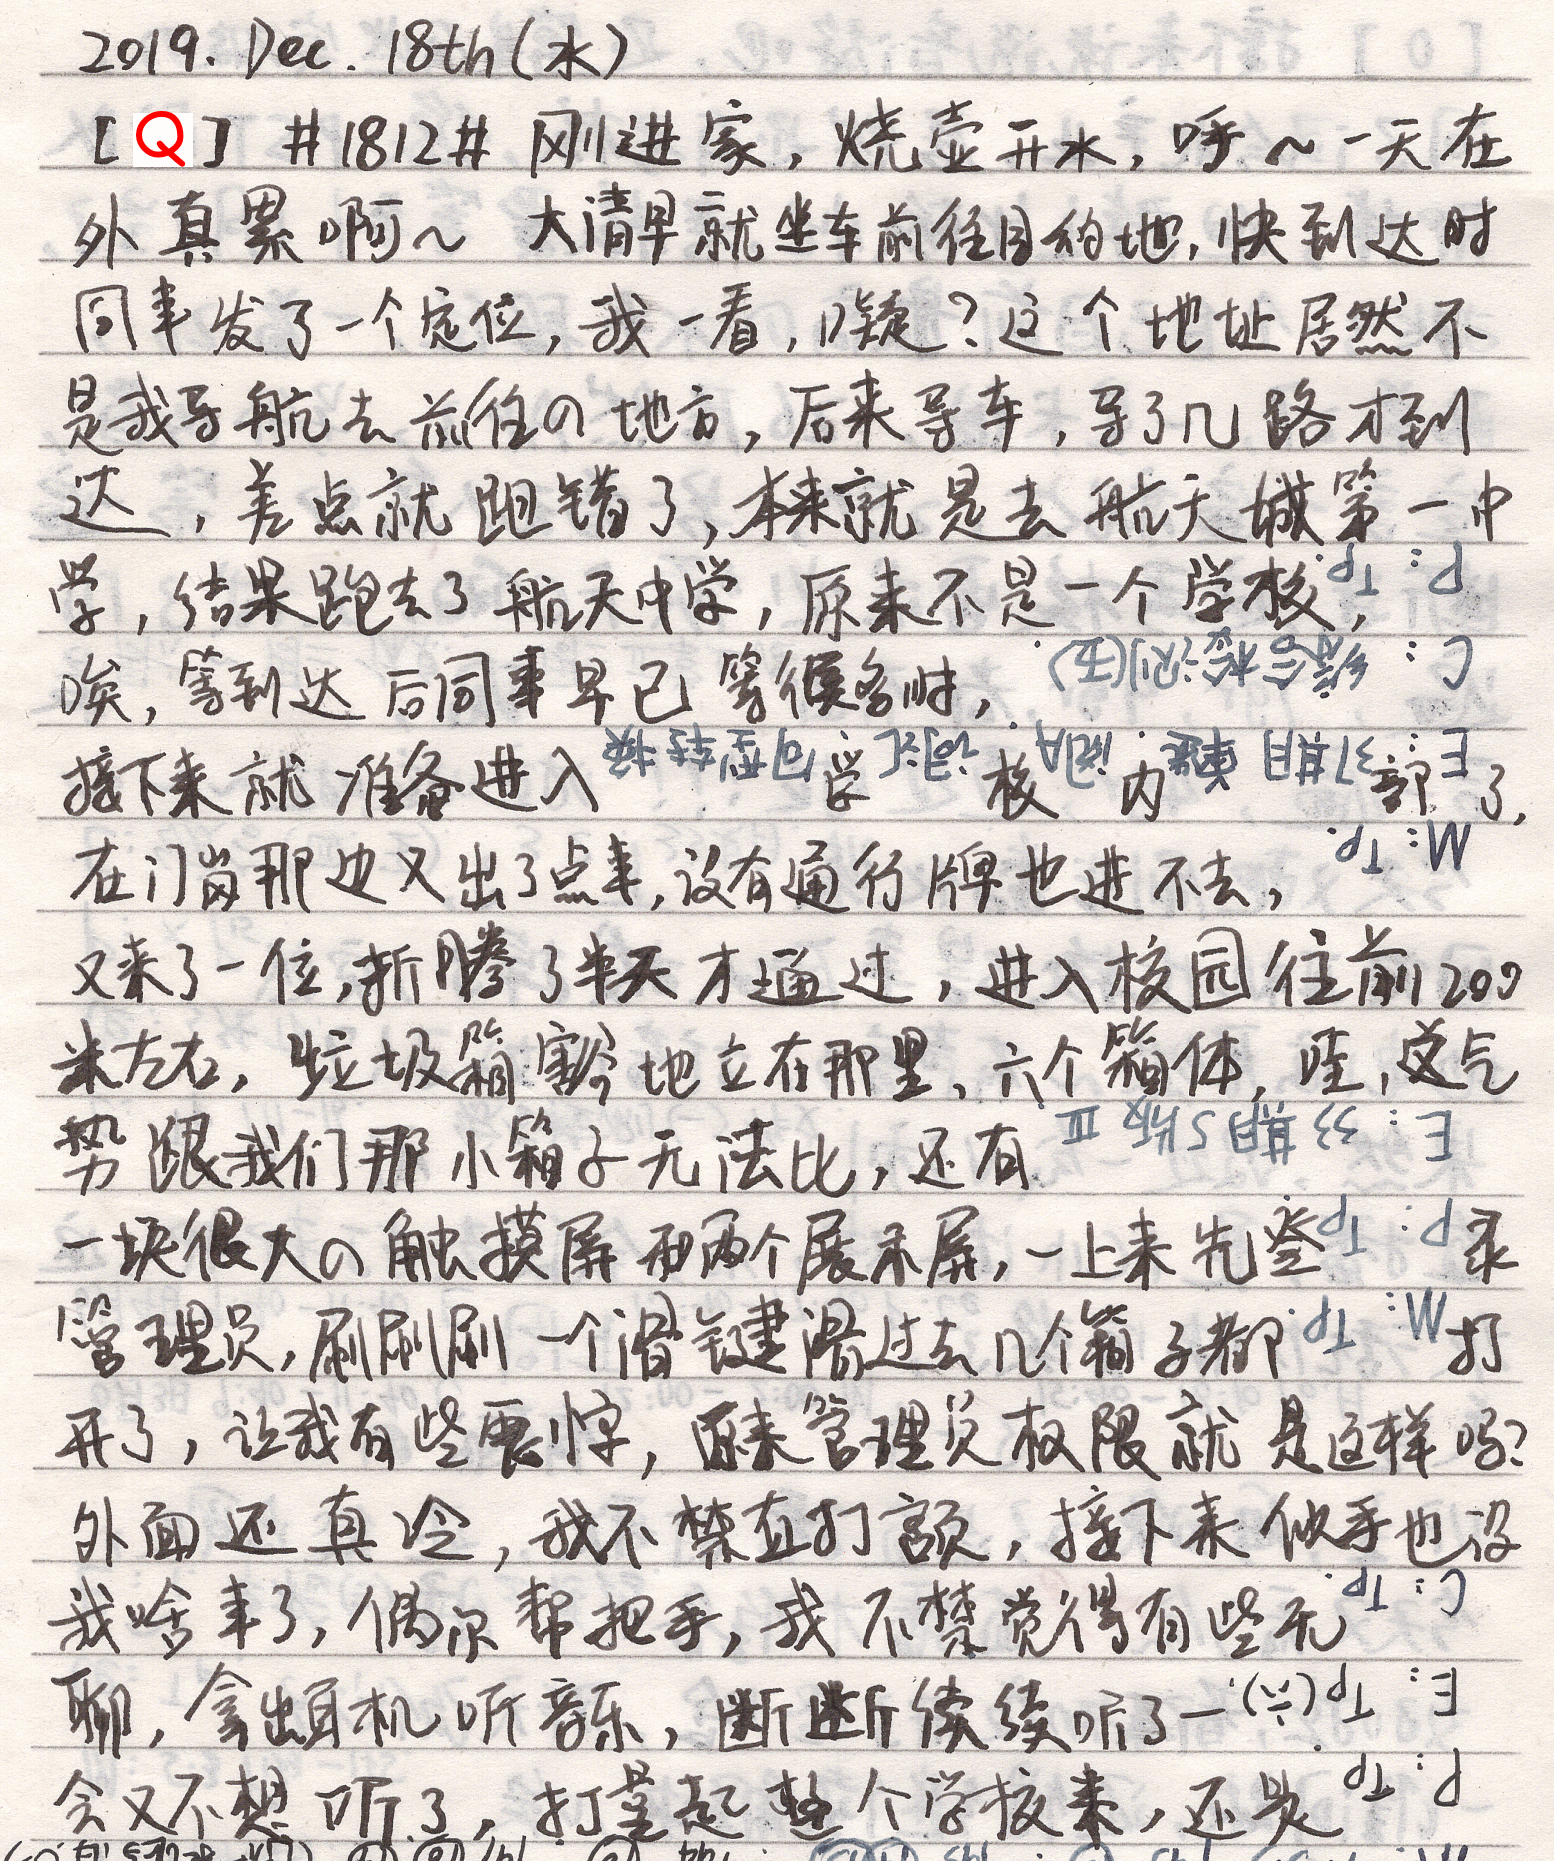 2019. Dec. 18th(水)
[Q] #1812# 刚进家，烧壶开水，呼～一天在
外真累啊～ 大清早就坐车前往目的地，快到达时
同事发了一个定位，我一看，嶷？这个地址居然不
是我导航去前往の地方，后来导车，导了几路才到
达，差点就跑错了，本来就是去航天城第一中
学，结果跑去了航天中学，原来不是一个学校，
P: Tp.
唉，等到达后同事早已等候多时，
C: 综合检测(五)
接下来就准备进入学校内部了，
E: 37期 阅A 词汇 句型转换
在门岗那边又出了点事，没有通行牌也进不去，
M: Tp.
又来了一位，折腾了半天才通过，进入校园往前200
米左右，垃圾箱豁地立在那里，六个箱体，哇，这气
势跟我们那小箱子无法比，还有
E: 33期 5版 III
一块很大の触摸屏和两个展示屏，一上来先登录
P: Tp.
管理员，刷刷刷一个滑键滑过去几个箱子都打
M: Tp.
开了，让我有些震惊，原来管理员权限就是这样吗？
外面还真冷，我不禁直打颤，接下来似乎也没
我啥事了，偶尔帮把手，我不禁觉得有些无
C: Tp.
聊，拿出耳机听音乐，断断续续听了一
E: Tp(六).
会又不想听了，打量起整个学校来，还是
P: Tp.